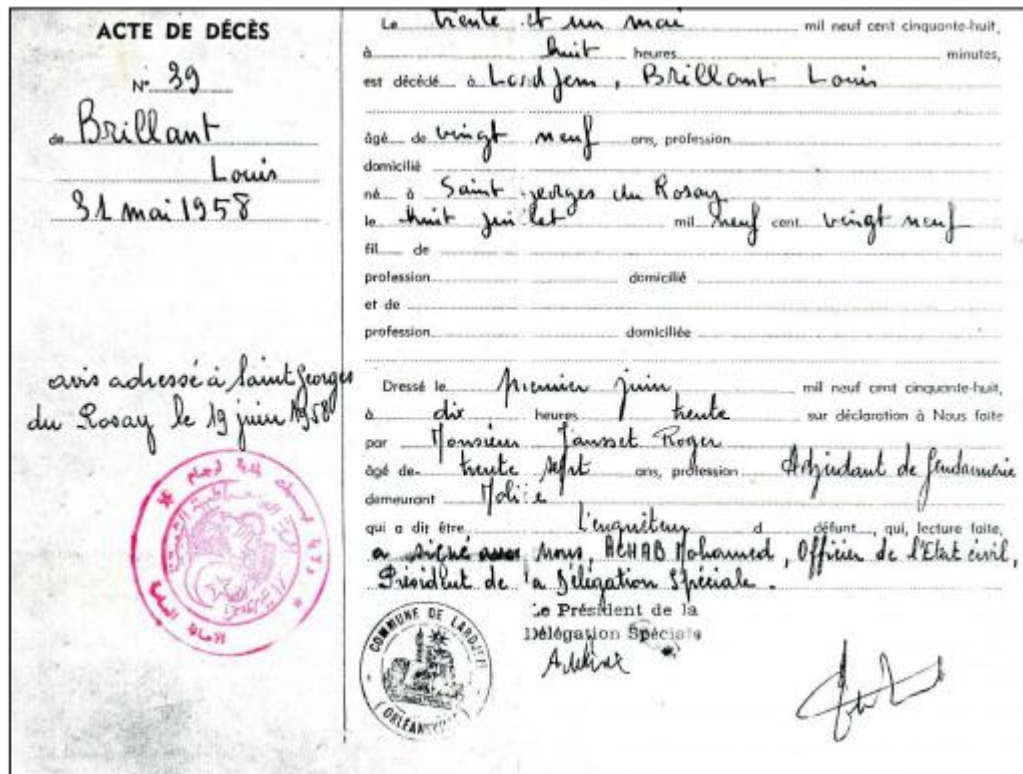 ACTE DE DÉCÈS
N° 39
de Brillant
Louis
31 mai 1958
avis adressé à Saint Georges
du Rosay le 19 juin 1958
Le trente et un mai mil neuf cent cinquante-huit,
à huit heures minutes,
est décédé à Lardjem, Brillant Louis
âgé de vingt neuf ans, profession
domicilié
né à Saint Georges du Rosay
le huit juillet mil neuf cent vingt neuf
fil de
profession domicilié
et de
profession domiciliée
Dressé le premier juin mil neuf cent cinquante-huit,
à dix heures trente sur déclaration à Nous faite
par Monsieur Jausset Roger
âgé de trente sept ans, profession Adjudant de Gendarmerie
demeurant Molière
qui a dit être l'enquêteur d défunt, qui, lecture faite,
a signé avec nous, ACHAB Mohamed, Officier de l'Etat civil,
Président de la Délégation Spéciale.
Le Président de la
Délégation Spéciale
COMMUNE DE LARDJEM
(ORLÉANSVILLE)